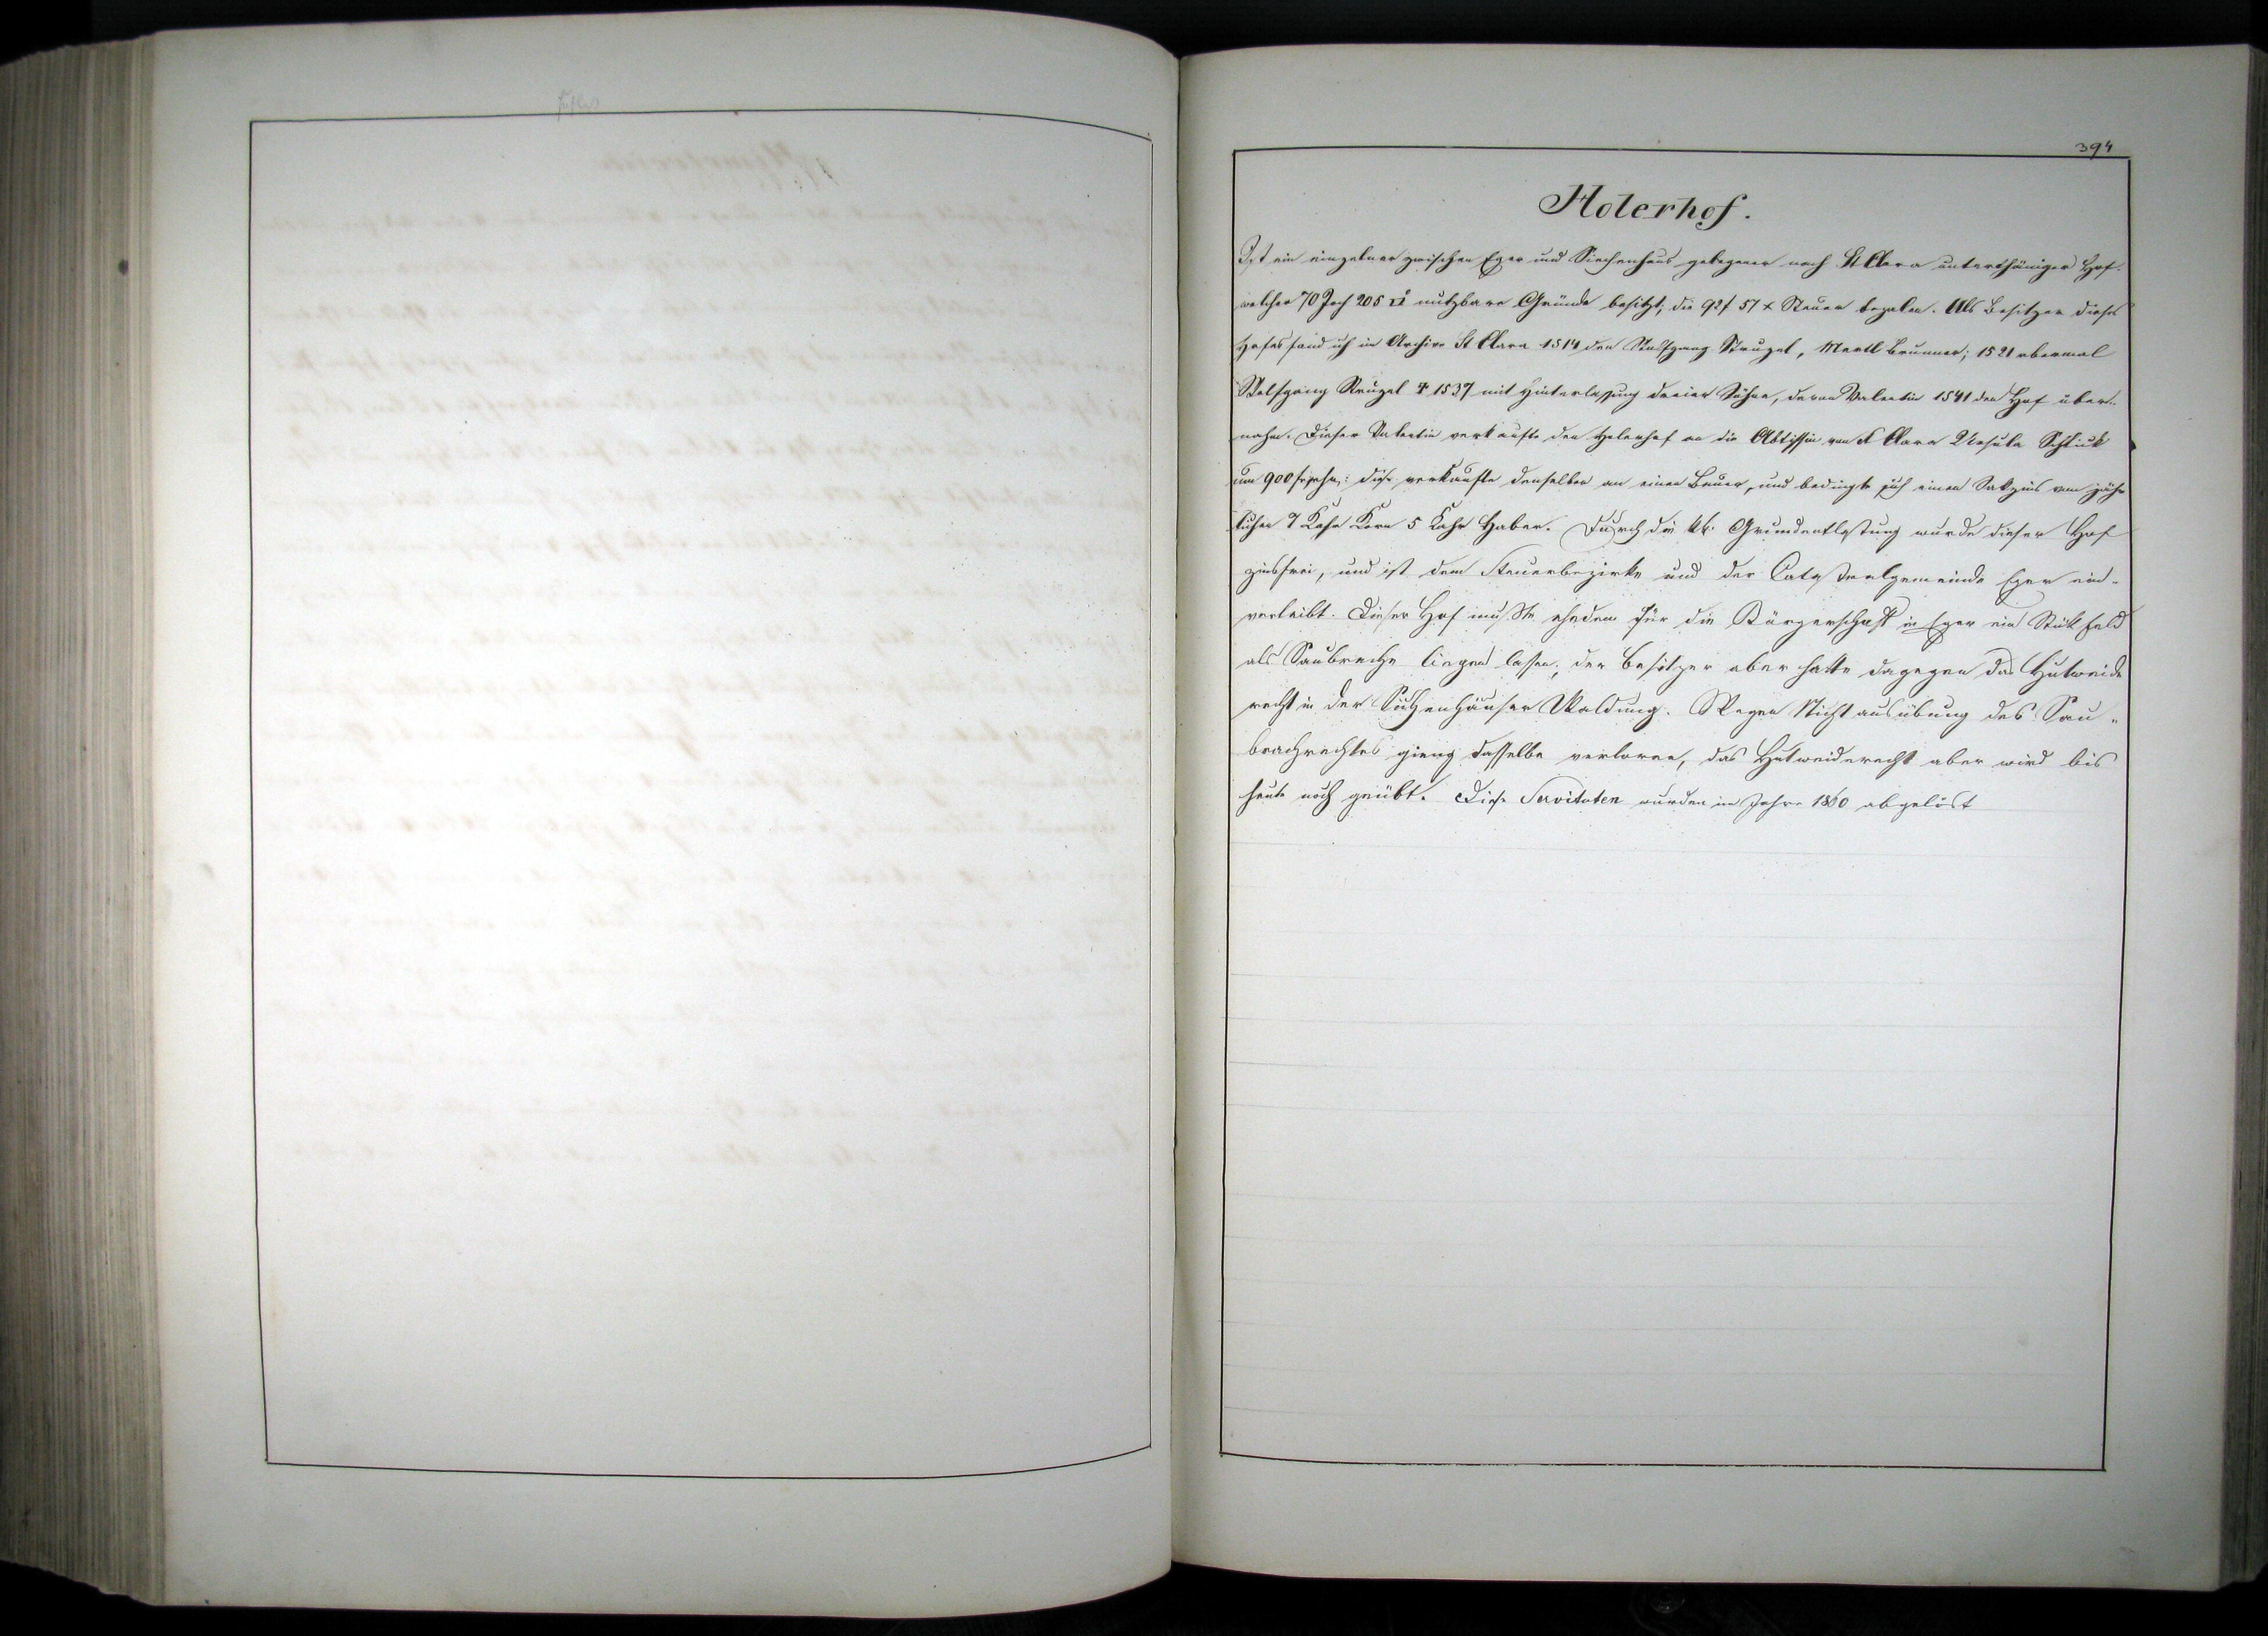 394
Holerhof.
Ist ein einzelner zwischen Eger und Siechenhaus gelegener nach St Clara unterthäniger Hof.
welcher 70 Joch 205 □° nutzbare Gründe besitzt, die 92 f 57 x Steuer bezalen. Als Besitzer dieses
Hofes fand ich im Archive St Clara 1514 den Wolfgang Strugel, Martl Brunner; 1521 abermal
Wolfgang Strugel † 1537 mit Hinterlassung dreier Söhne, deren Valentin 1541 den Hof über-
nahm. Dieser Valentin verkaufte den Holerhof an die Abtissin von St Clara Ursula Schlick
um 900 f diese verkaufte denselben an einen Bauer, und bedingte sich einen Sakzins von jähr
lichen 7 Kahr Korn 5 Kahr Haber. Durch die kk. Grundentlastung wurde dieser Hof
zinsfrei, und ist dem Steuerbezirke und der Catastralgemeinde Eger ein-
verleibt. Dieser Hof mußte ehedem für die Bürgerschaft in Eger ein Stük Feld
als Saubrache liegen lassen, der Besitzer aber hatte dagegen das Hutweide
recht in der Siechenhäuser Waldung. Wegen Nichtausübung des Sau-
brachrechtes gieng dasselbe verloren, das Hutweiderecht aber wird bis
heute noch geübt. Diese Servituten wurden im Jahre 1860 abgelöst